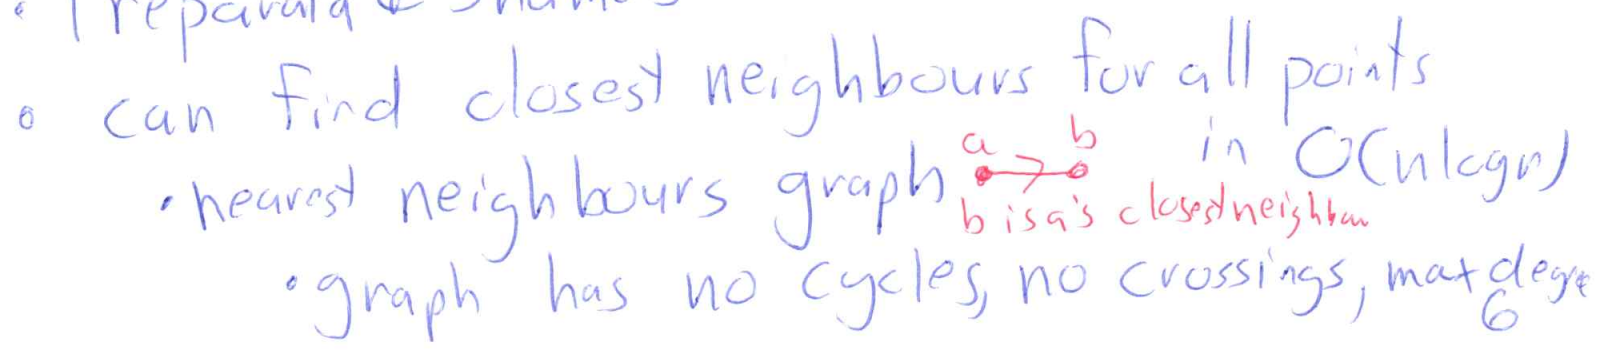 • Preparata & Shamos
• can find closest neighbours for all points
in O(nlogn)
• nearest neighbours graph
a b
b is a's closest neighbour
• graph has no cycles, no crossings, max degree
6